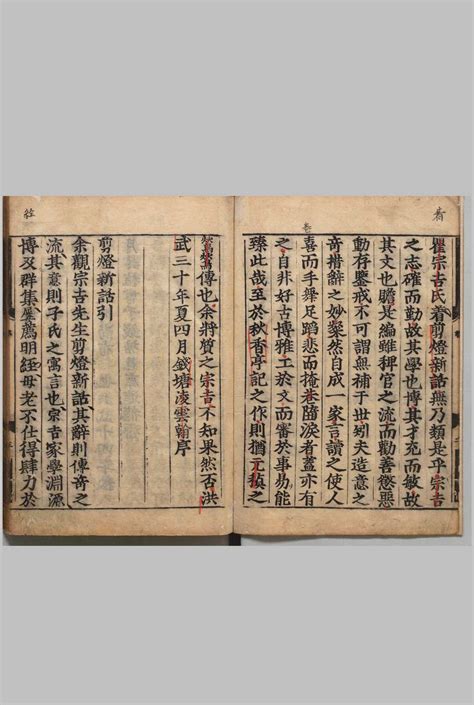 瞿宗吉氏着剪燈新話無乃類是乎宗吉
之志確而勤故其學也博其才充而敏故
其文也贍是編雖稗官之流而勸善懲惡
動存鑒戒不可謂無補于世矧夫造意之
奇措辭之妙粲然自成一家言讀之使人
喜而手舞足蹈悲而掩巷墮淚者蓋亦有
之自非好古博雅工於文而審於事曷能
臻此哉至於秋香亭記之作則猶元稹之
鶯鶯傳也余將質之宗吉不知果然否洪
武三十年夏四月錢塘凌雲翰序
剪燈新話引
余觀宗吉先生剪燈新話其辭則傳奇之
流其意則子氏之寓言也宗吉家學淵源
博及群集屢薦明経母老不仕得肆力於